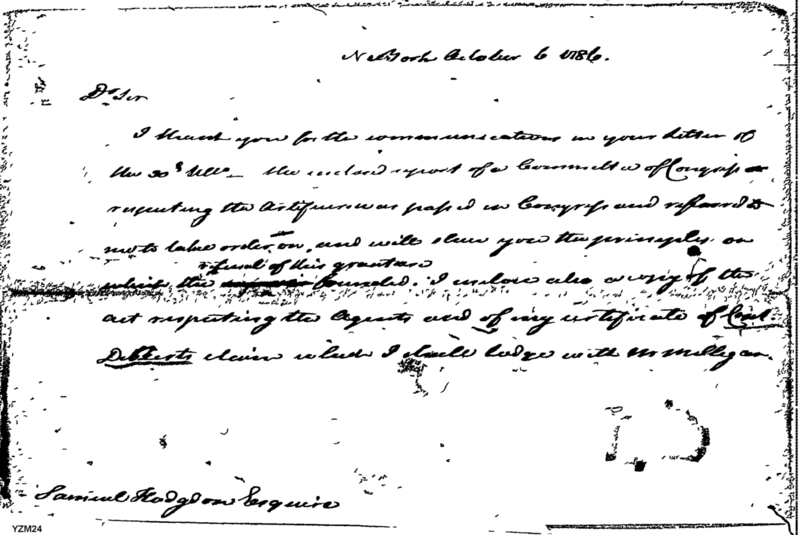 New York October 6 1786.
Dr Sir
I thank you for the communications in your letter of
the 30th Ulto – the inclosed report of a Committee of Congress
respecting the Artificers was passed in Congress and referred to
me to take order on, and will shew you the principles on
refusal of this grant are
which the founded. I inclose also a copy of the
act respecting the Agents and of my certificate of Lieut
Dibberts claim which I shall lodge with Mr Milligan.
Samuel Hodgdon Esquire
YZM24